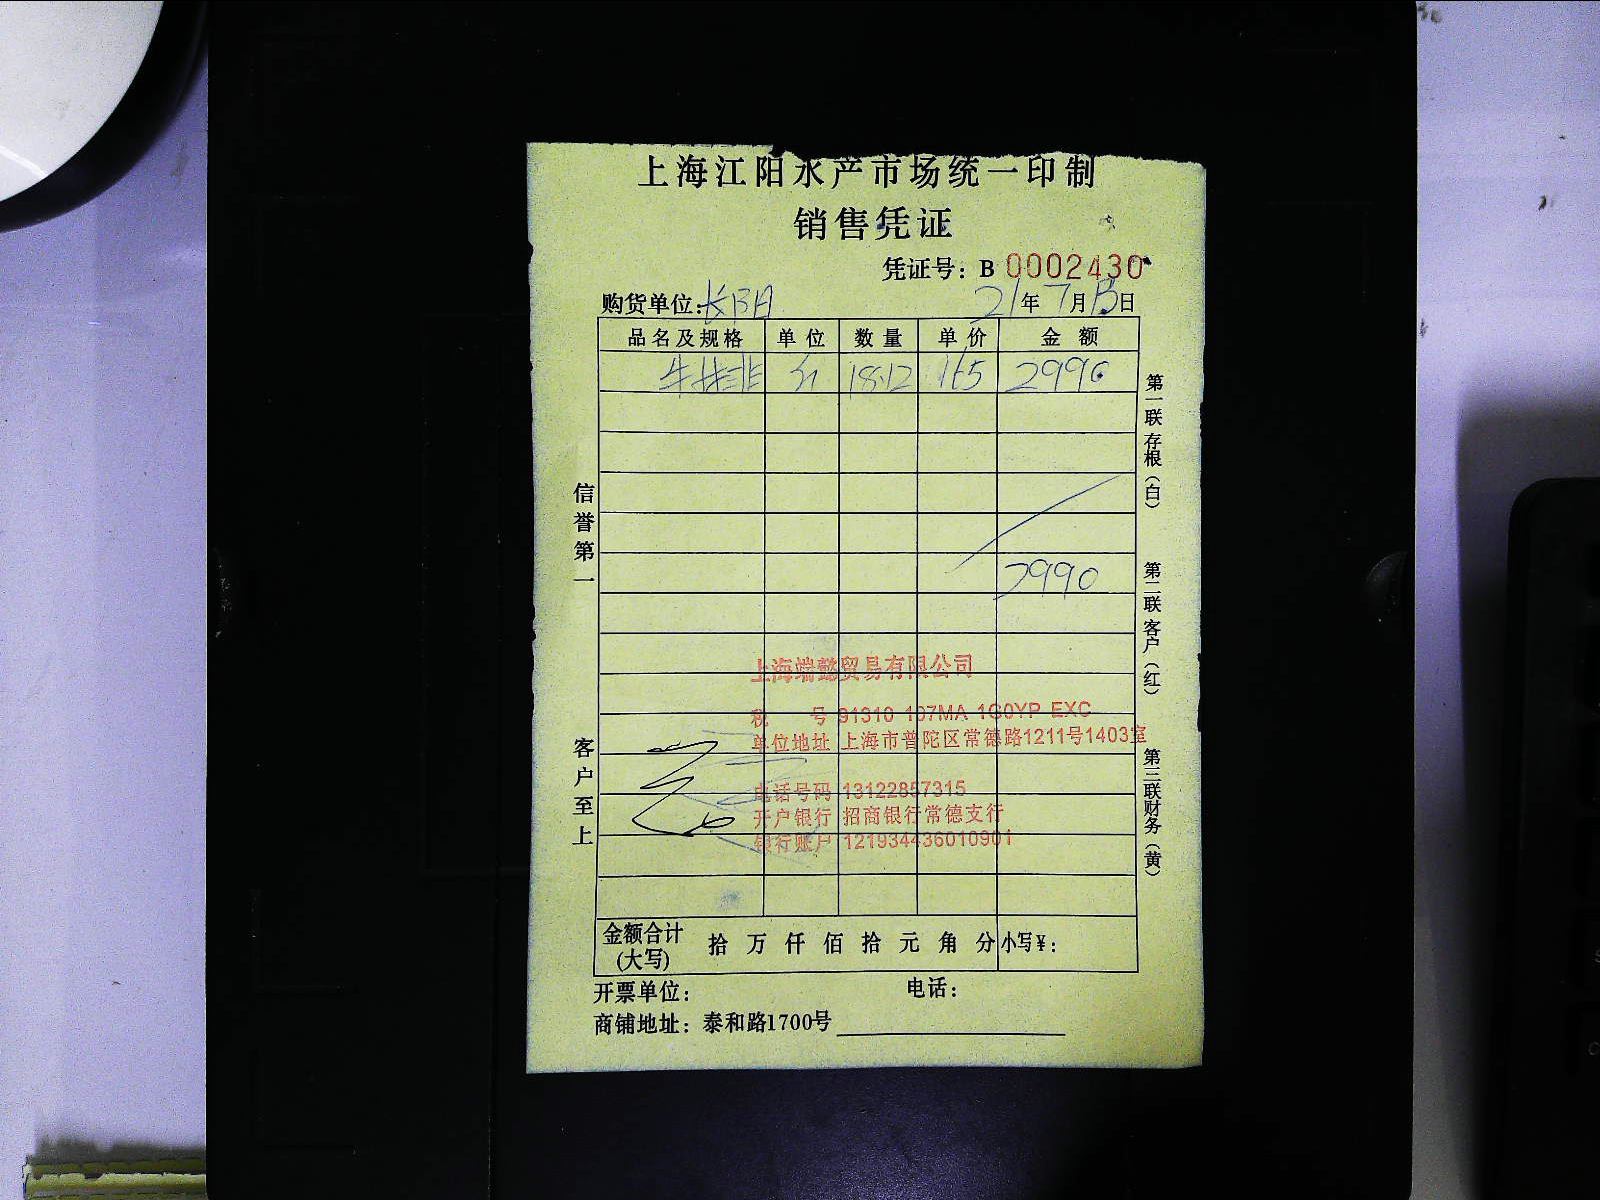 上海江阳水产市场统一印制
销售凭证
凭证号：B 0002430
购货单位： 21年7月13日
品名及规格 单位 数量 单价 金额
牛排 18.12 165 2990
2990
信誉第一
客户至上
第一联 存根（白）
第二联 客户（红）
第三联 财务（黄）
上海端懿贸易有限公司
税 号 91310 107MA 1G0YP EXC
单位地址 上海市普陀区常德路1211号1403室
电话号码 13122857315
开户银行 招商银行常德支行
银行账户 121934436010901
金额合计(大写) 拾 万 仟 佰 拾 元 角 分 小写¥：
开票单位： 电话：
商铺地址：泰和路1700号